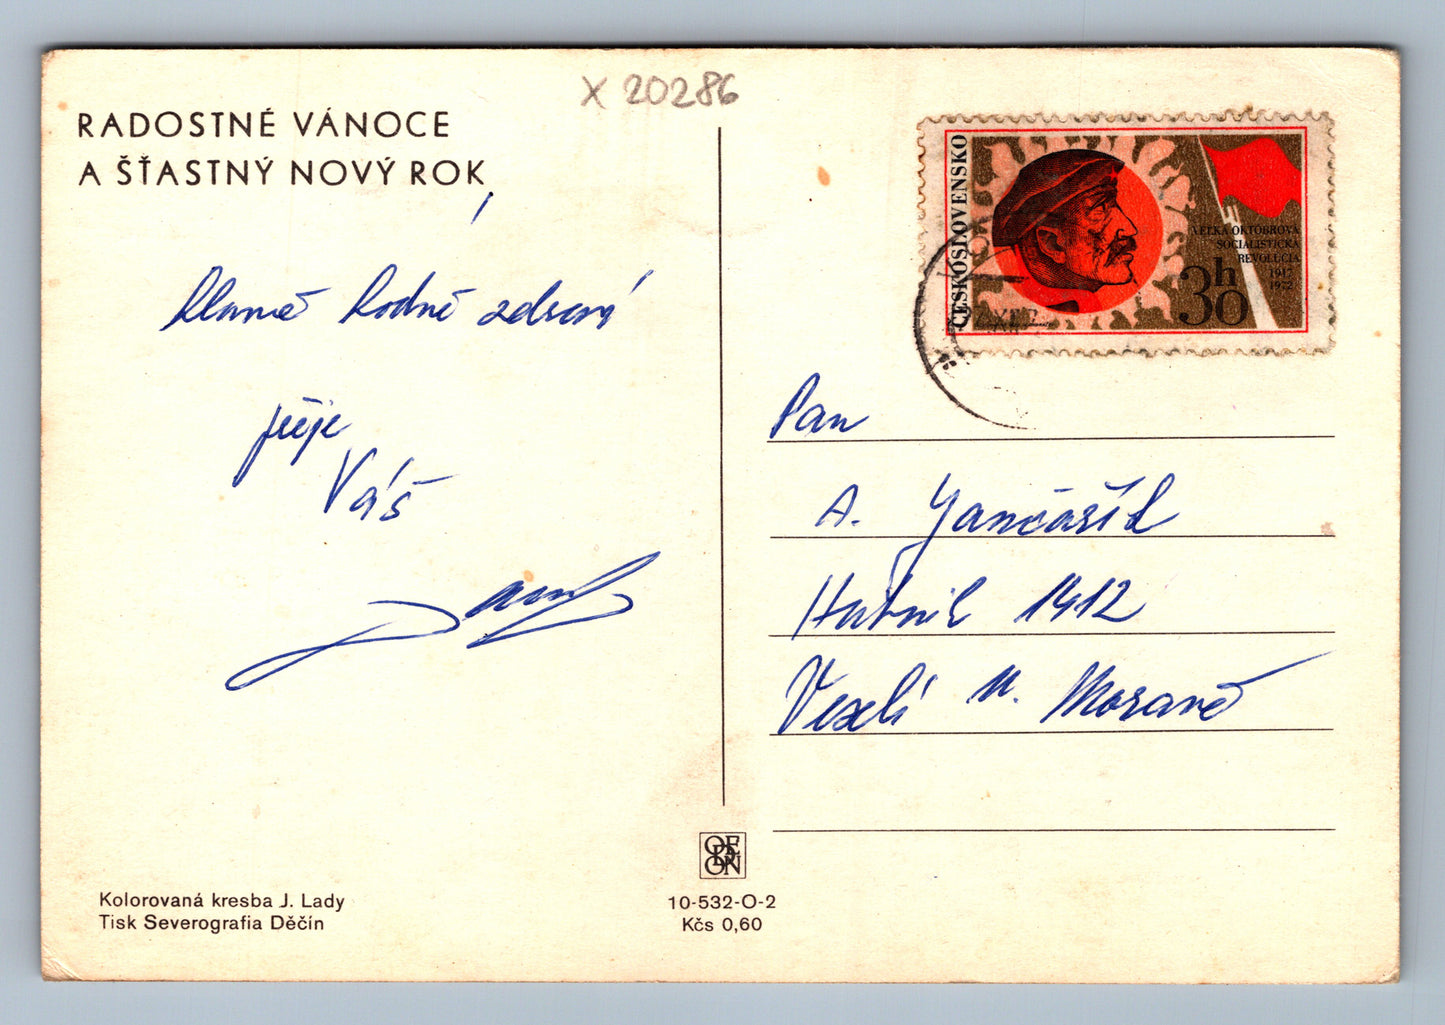 X 20286
RADOSTNÉ VÁNOCE
A ŠŤASTNÝ NOVÝ ROK,
hlavně hodně zdraví
přeje
Váš
Kolorovaná kresba J. Lady
Tisk Severografia Děčín
ODEON
10-532-O-2
Kčs 0,60
ČESKOSLOVENSKO
VEĽKÁ OKTÓBROVÁ
SOCIALISTICKÁ
REVOLÚCIA
1917
1972
30h
Pan
A. Jančářík
Hutník 1412
Veselí n. Moravě